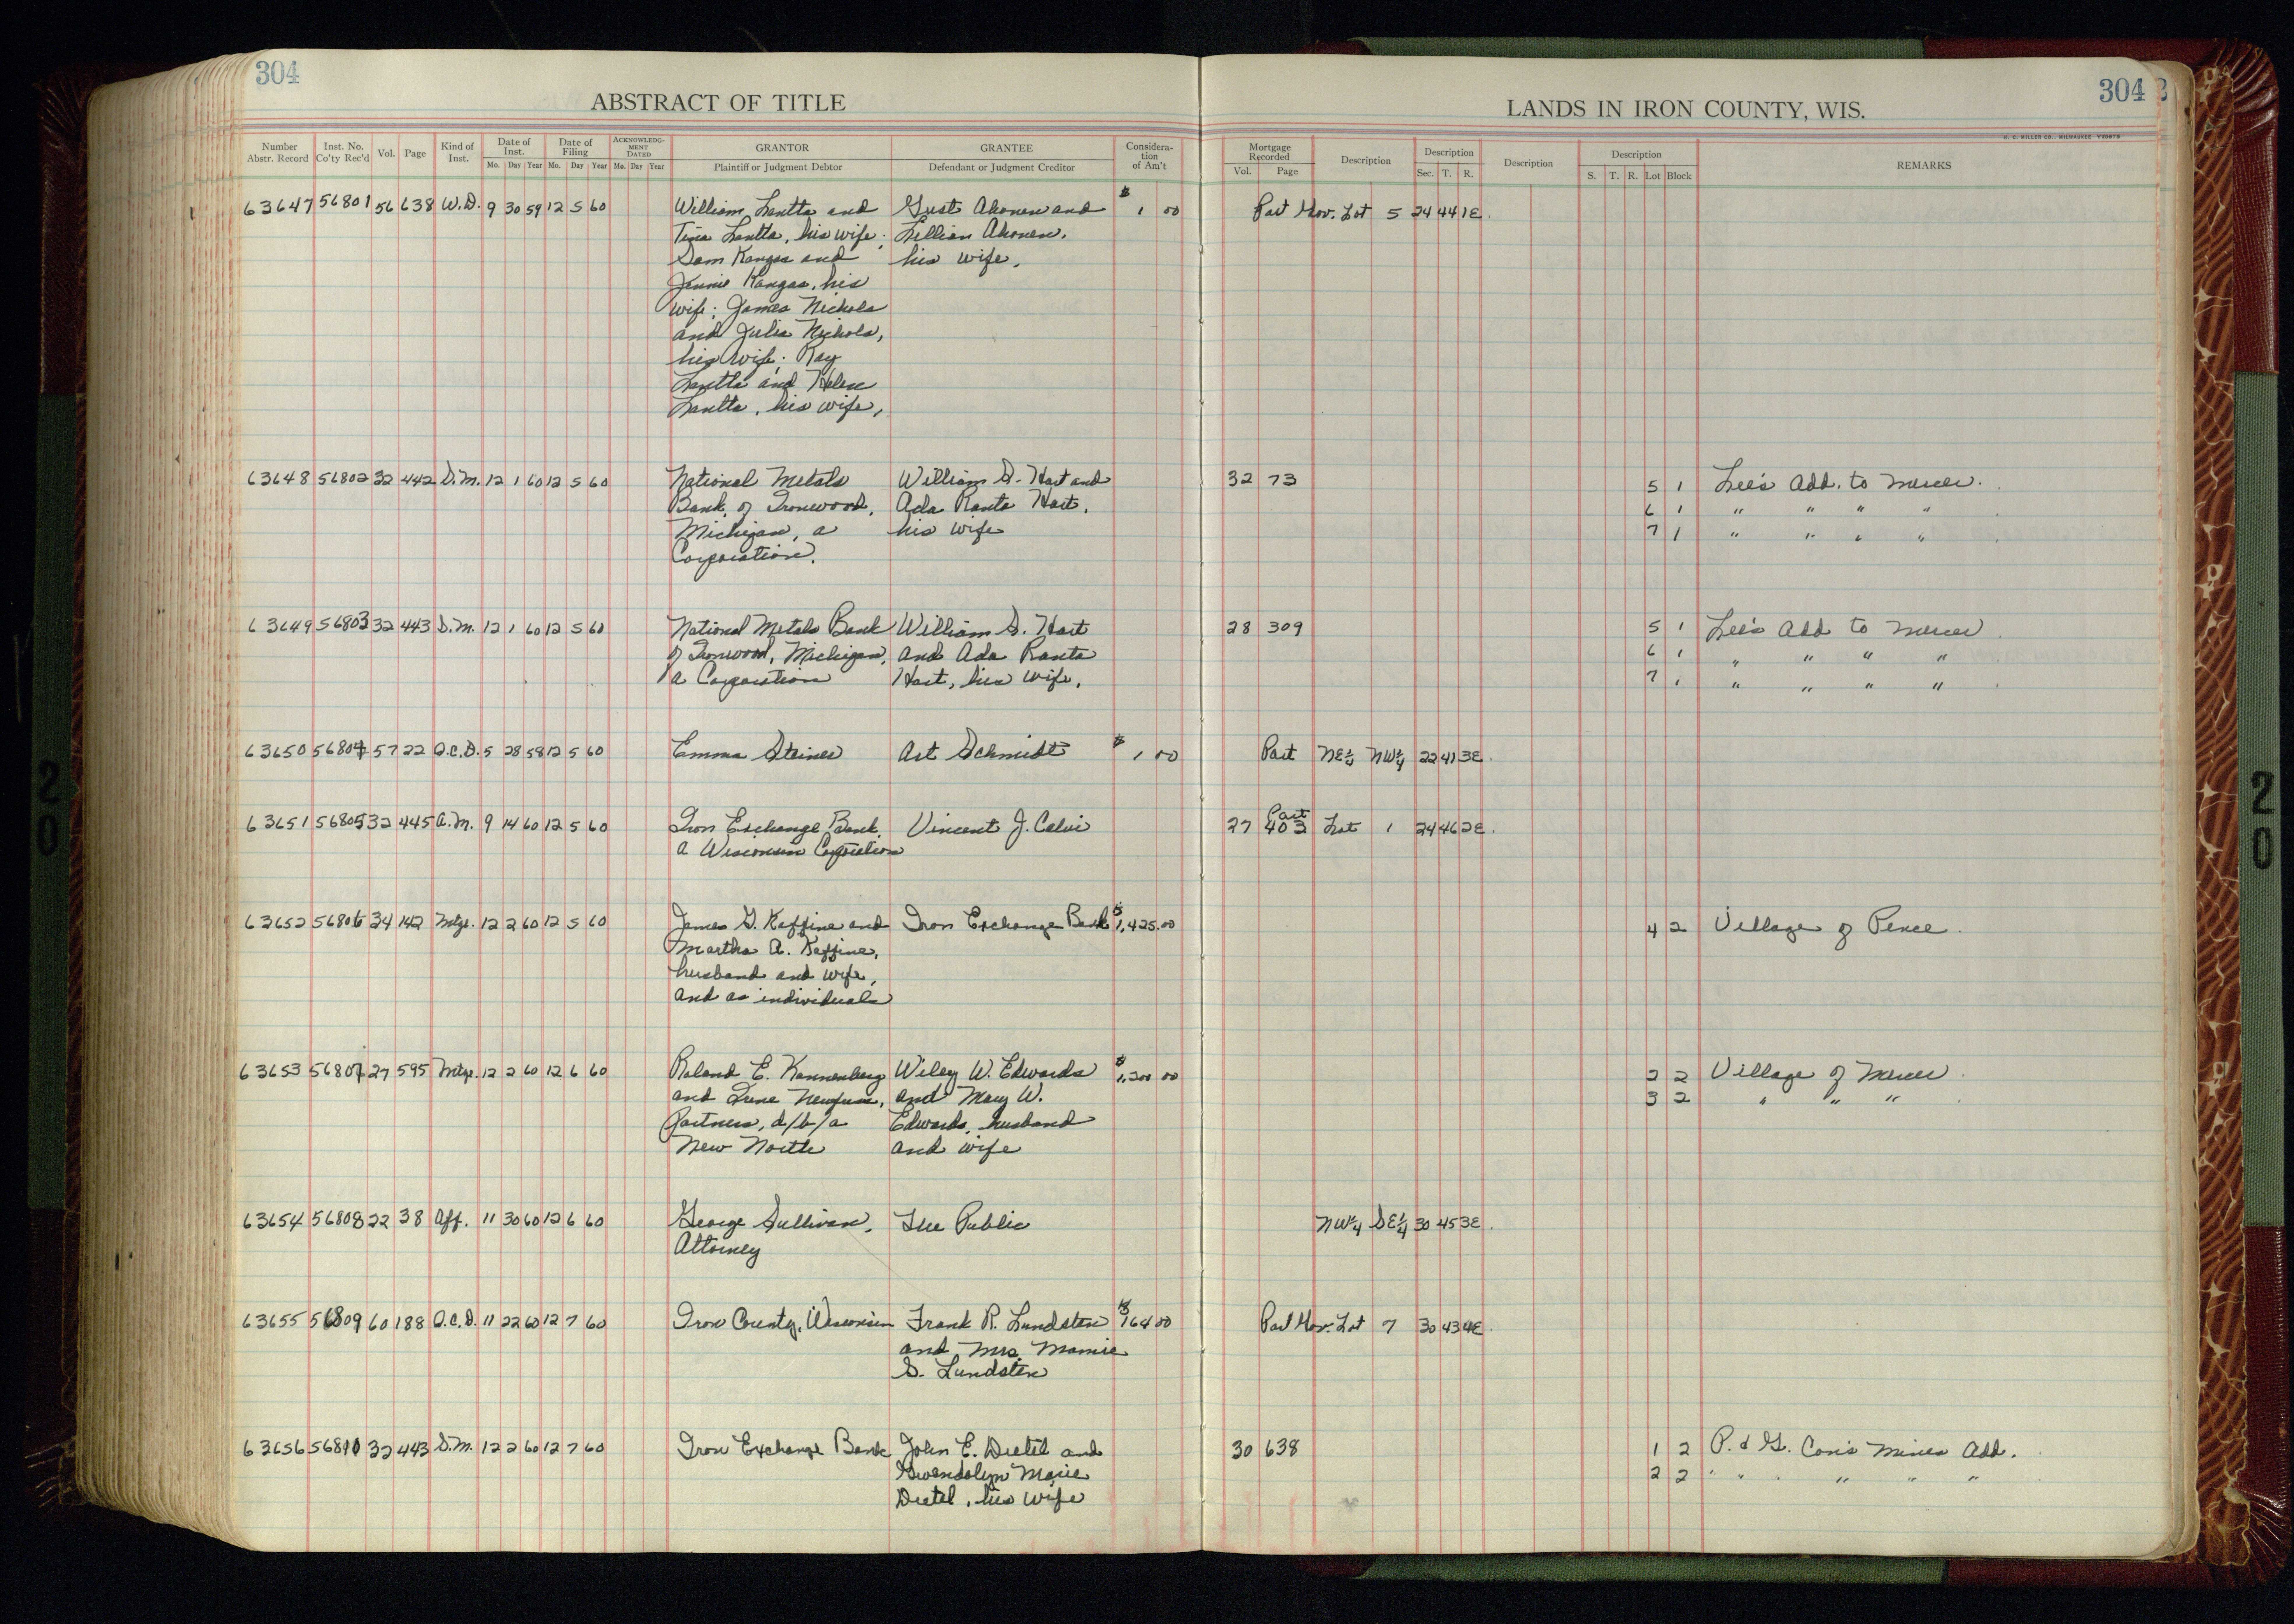 304
ABSTRACT OF TITLE
Number Abstr. Record
Inst. No. Co'ty Rec'd
Vol.
Page
Kind of Inst.
Date of Inst.
Mo. Day Year
Date of Filing
Mo. Day Year
ACKNOWLEDG-MENT DATED
Mo. Day Year
GRANTOR
Plaintiff or Judgment Debtor
GRANTEE
Defendant or Judgment Creditor
Considera-tion of Am't
304
LANDS IN IRON COUNTY, WIS.
H. C. MILLER CO., MILWAUKEE
Mortgage Recorded
Vol. Page
Description
Description
Sec. T. R.
Description
Description
S. T. R. Lot Block
REMARKS
63647 56801 56 638 W.D. 9 30 59 12 5 60 William Lantta and Gust Ahonen and $1 00 Part Gov. Lot 5 24 44 1E.
Tina Lantta, his wife; Lillian Ahonen,
Sam Kangas and his wife.
Jennie Kangas, his
wife; James Nichols
and Julia Nichols,
his wife; Ray
Lantta and Helen
Lantta, his wife,
63648 56802 32 442 S.M. 12 1 60 12 5 60 National Metals William S. Hart and 32 73 5 1 Lee's Add. to Mercer.
Bank, of Ironwood, Ada Ranta Hart, 6 1 " " " "
Michigan, a his wife 7 1 " " " "
Corporation.
63649 56803 32 443 S.M. 12 1 60 12 5 60 National Metals Bank William S. Hart 28 309 5 1 Lee's Add to Mercer
of Ironwood, Michigan, and Ada Ranta 6 1 " " " "
a Corporation Hart, his wife, 7 1 " " " "
63650 56804 57 22 Q.C.D. 5 28 58 12 5 60 Emma Steiner Art Schmidt $1 00 Part NE¼ NW¼ 22 41 3E.
63651 56805 32 445 A.M. 9 14 60 12 5 60 Iron Exchange Bank, Vincent J. Calvi 27 403 Part Lot 1 24 46 2E.
a Wisconsin Corporation
63652 56806 34 142 Mtge. 12 2 60 12 5 60 James G. Kaffine and Iron Exchange Bank $1,425.00 4 2 Village of Pence.
Martha A. Kaffine,
husband and wife,
and as individuals
63653 56807 27 595 Mtge. 12 2 60 12 6 60 Roland E. Kannenberg Wiley W. Edwards $1,200 00 2 2 Village of Mercer.
and and Mary W. 3 2 " " "
Partners, d/b/a Edwards, husband
New North and wife
63654 56808 22 38 Aff. 11 30 60 12 6 60 George Sullivan, The Public NW¼ SE¼ 30 45 3E.
Attorney
63655 56809 60 188 Q.C.D. 11 22 60 12 7 60 Iron County, Wisconsin Frank R. Lundsten $164 00 Part Gov. Lot 7 30 43 4E.
and Mrs. Mamie
S. Lundsten
63656 56810 32 443 S.M. 12 2 60 12 7 60 Iron Exchange Bank John E. Dietel and 30 638 1 2 P. & G. Con's Mines Add.
Gwendolyn Marie 2 2 " " " " "
Dietel, his wife
20
20